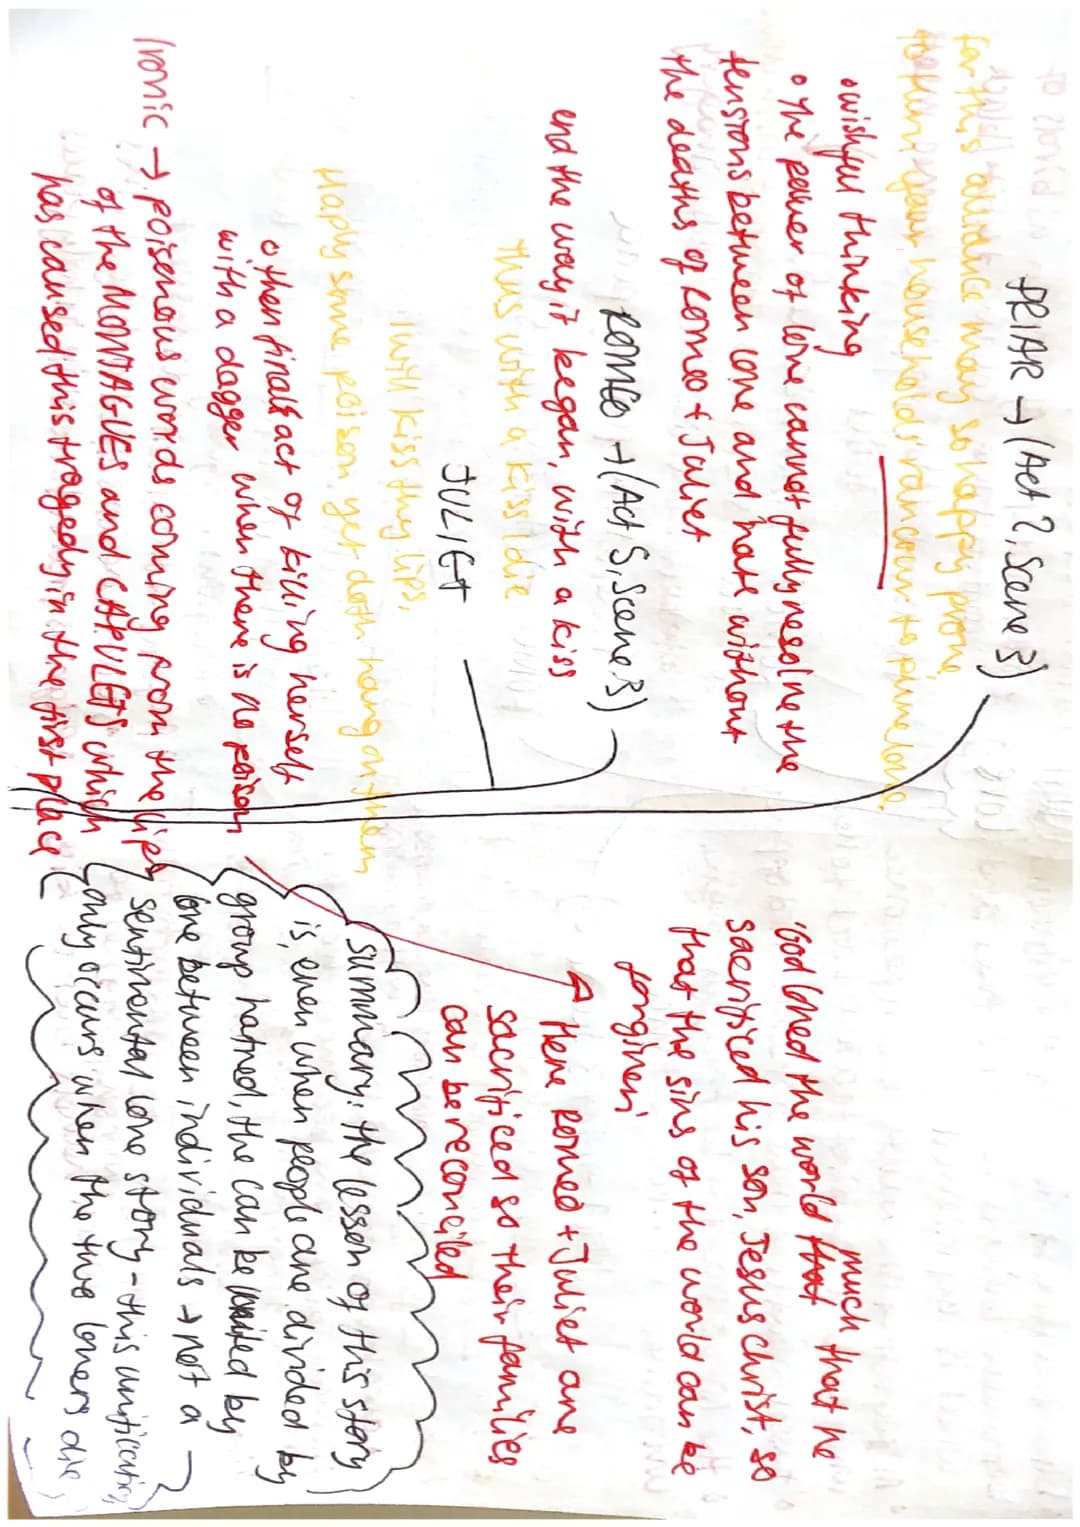 FRIAR → (Act 2, Scene 3)
for this alliance may so happy prove,
to turn your households' rancour to pure love.
• wishful thinking
• The power of love cannot fully resolve the
tensions between love and hate without
the deaths of Romeo + Juliet
ROMEO → (Act 5, Scene 3)
end the way it began, with a kiss
Thus with a kiss I die
JULIET
I will kiss thy lips,
Haply some poison yet doth hang on them
• then final act of killing herself
with a dagger when there is no poison
Ironic → poisonous words coming from the lips
of the MONTAGUES and CAPULETS which
has caused this tragedy in the first place
'God loved the world that much that he
sacrificed his son, Jesus Christ, so
that the sins of the world can be
forgiven'
Here Romeo + Juliet are
sacrificed so their families
can be reconciled
summary: the lesson of this story
is, even when people are divided by
group hatred, the can be united by
love between individuals → not a
sentimental love story - this unification
only occurs when the two lovers die